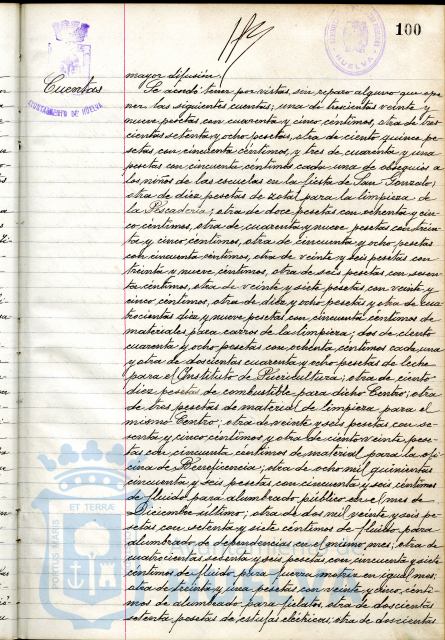 100
Cuentas
AYUNTAMIENTO DE HUELVA
HUELVA
mayor difusión.
Se acordó tener por vistas, sin reparo alguno que opo-
ner las siguientes cuentas; una de trescientas veinte y
nueve pesetas con cuarenta y cinco céntimos, otra de tres
cientas setenta y ocho pesetas, otra de ciento quince pe-
setas con cincuenta céntimos, y tres de cuarenta y una
pesetas con cincuenta céntimos cada una de obsequios a
los niños de las escuelas en la fiesta de San Gonzalo;
otra de diez pesetas de zotal para la limpieza de
la Pescadería; otra de doce pesetas con ochenta y cin-
co céntimos, otra de cuarenta y nueve pesetas con trein-
ta y cinco céntimos, otra de cincuenta y ocho pesetas
con cincuenta céntimos, otra de veinte y seis pesetas con
treinta y nueve céntimos, otra de seis pesetas con sesen-
ta céntimos, otra de veinte y siete pesetas con veinte y
cinco céntimos, otra de diez y ocho pesetas y otra de cua-
trocientas diez y nueve pesetas con cincuenta céntimos de
materiales para carros de la limpieza; dos de ciento
cuarenta y ocho pesetas con ochenta céntimos cada una
y otra de doscientas cuarenta y ocho pesetas de leche
para el Instituto de Puericultura; otra de ciento
diez pesetas de combustible para dicho Centro; otra
de tres pesetas de material de limpieza para el
mismo Centro; otra de veinte y seis pesetas con se-
senta y cinco céntimos y otra de ciento veinte pese-
tas de cincuenta céntimos de material para la ofi-
cina de Beneficencia; otra de ocho mil quinientas
cincuenta y seis pesetas con cincuenta y seis céntimos
de fluido para alumbrado público en el mes de
Diciembre último; otra de dos mil veinte y seis pe-
setas con setenta y siete céntimos de fluido para
alumbrado de dependencias en el mismo mes; otra de
cuatrocientas setenta y seis pesetas con cincuenta y siete
céntimos de fluido para fuerza motriz en igual mes;
otra de treinta y una pesetas con veinte y cinco cénti-
mos de alumbrado para fielatos, otra de doscientas
setenta pesetas de estufas eléctricas; otra de doscientas
ET TERRA
PORTUS MARIS
Ayuntamiento de